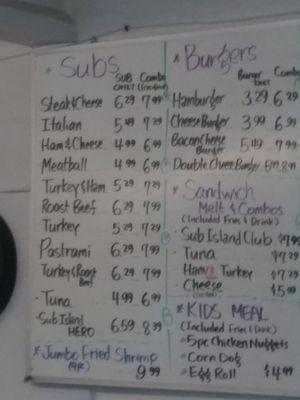 * Subs
SUB ONLY Combo (fries/drink)
Steak&Cheese 6.29 7.99
Italian 5.49 7.29
Ham&Cheese 4.99 6.99
Meatball 4.99 6.99
Turkey&Ham 5.29 7.29
Roast Beef 6.29 7.99
Turkey 5.29 7.29
Pastrami 6.29 7.99
Turkey&Roast Beef 6.29 7.99
· Tuna 4.99 6.99
· Sub Island HERO 6.59 8.39
* Jumbo Fried Shrimp
9.99
* Burgers
Burger ONLY Combo
Hamburger 3.29 6.29
Cheese Burger 3.99 6.99
Bacon Cheese Burger 5.49 7.99
Double Cheese Burger
* Sandwich
Melt & Combos
(Included Fries & Drink)
· Sub Island Club $7.99
· Tuna $7.29
· Ham Turkey $7.29
· Cheese $5.99
* KIDS MEAL
(Included Fries & Drink)
* 5pc Chicken Nuggets
* Corn Dog
* Egg Roll $4.99